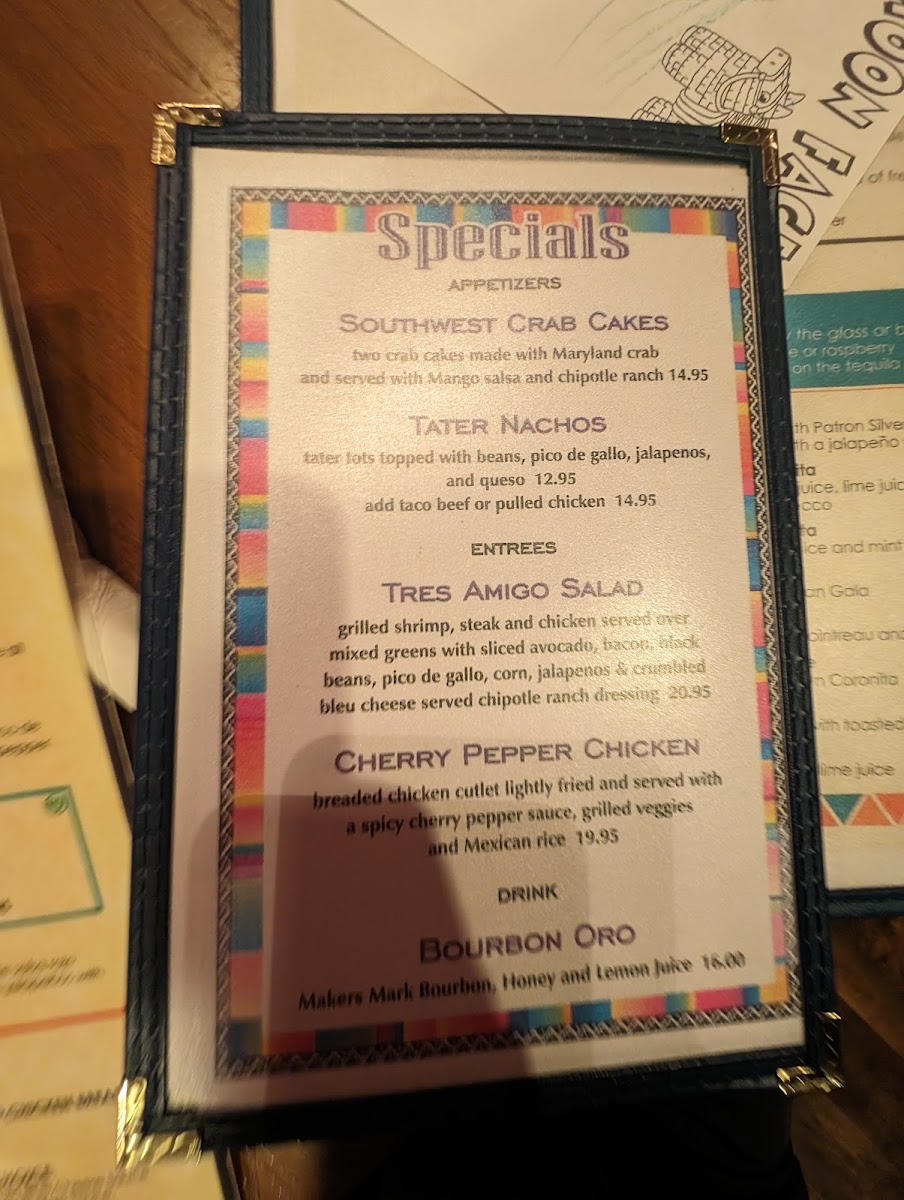 Specials
APPETIZERS
SOUTHWEST CRAB CAKES
two crab cakes made with Maryland crab
and served with Mango salsa and chipotle ranch 14.95
TATER NACHOS
tater tots topped with beans, pico de gallo, jalapenos,
and queso 12.95
add taco beef or pulled chicken 14.95
ENTREES
TRES AMIGO SALAD
grilled shrimp, steak and chicken served over
mixed greens with sliced avocado, bacon, black
beans, pico de gallo, corn, jalapenos & crumbled
bleu cheese served chipotle ranch dressing 20.95
CHERRY PEPPER CHICKEN
breaded chicken cutlet lightly fried and served with
a spicy cherry pepper sauce, grilled veggies
and Mexican rice 19.95
DRINK
BOURBON ORO
Makers Mark Bourbon, Honey and Lemon Juice 16.00
the glass or
or raspberry
on the tequila
Patron
a jalapeño
juice, lime
and mint
Gala
and
Coronita
toasted
lime juice